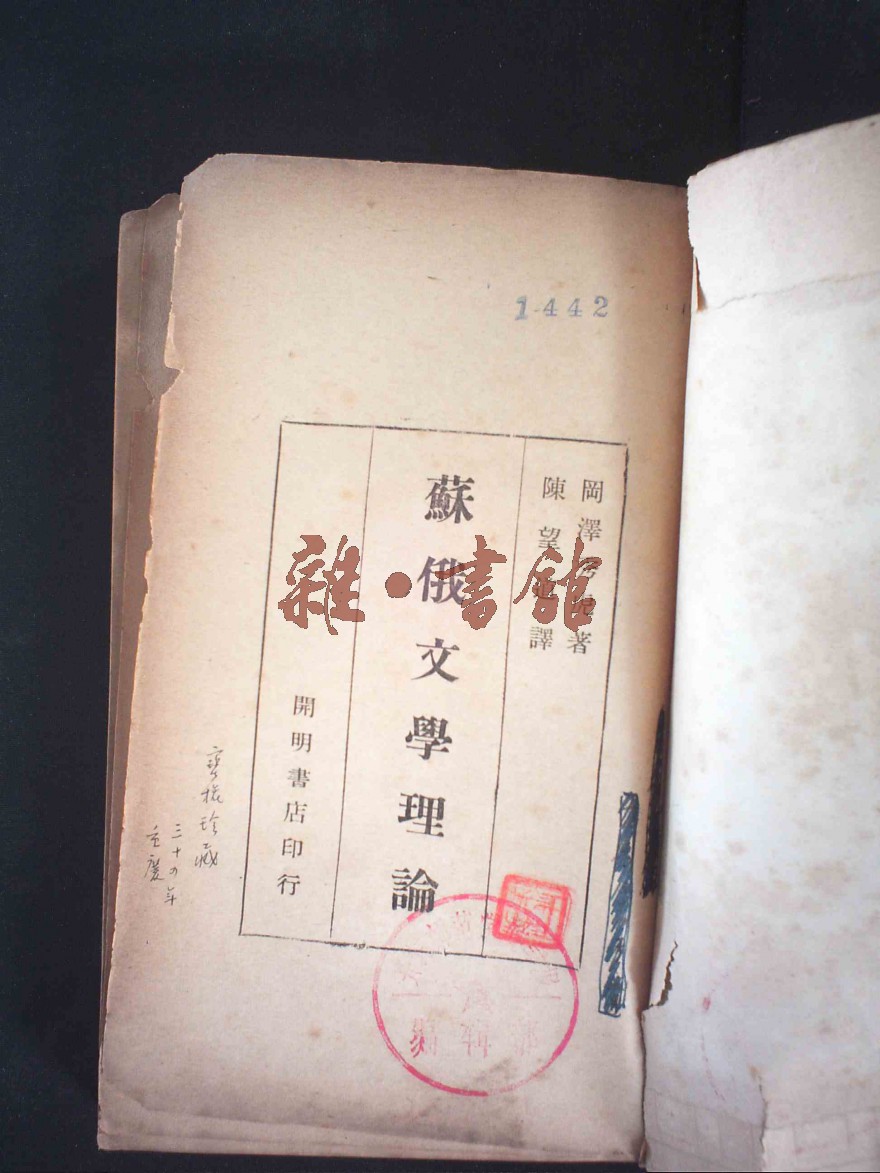 1442
岡澤秀虎著
陳望道譯
蘇俄文學理論
開明書店印行
珍藏
三十四年
重慶
雜·書館
編輯